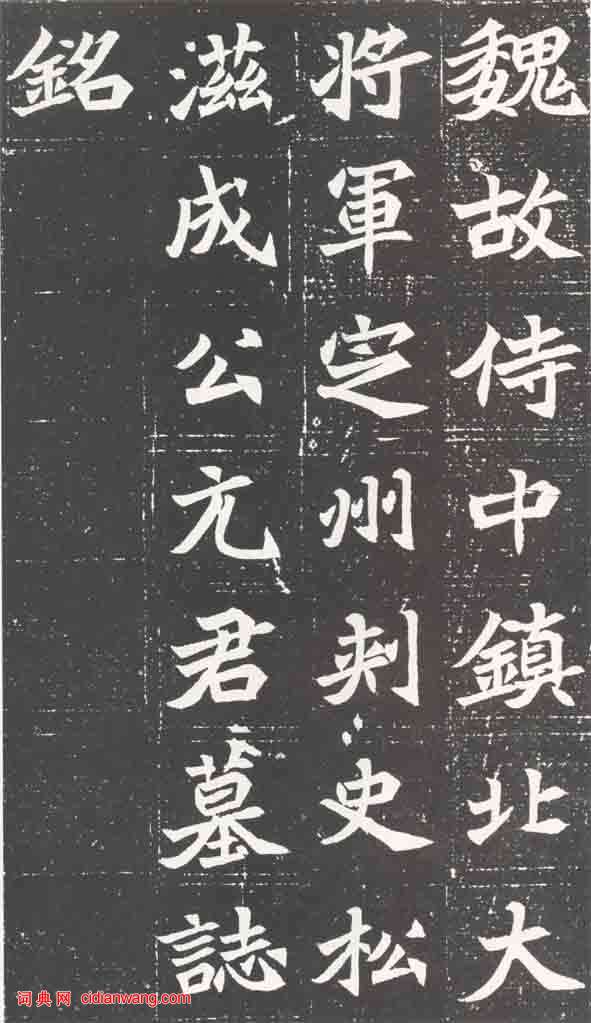 魏故侍中鎮北大
將軍定州刺史松
滋成公元君墓誌
銘
词典网 cidianwang.com